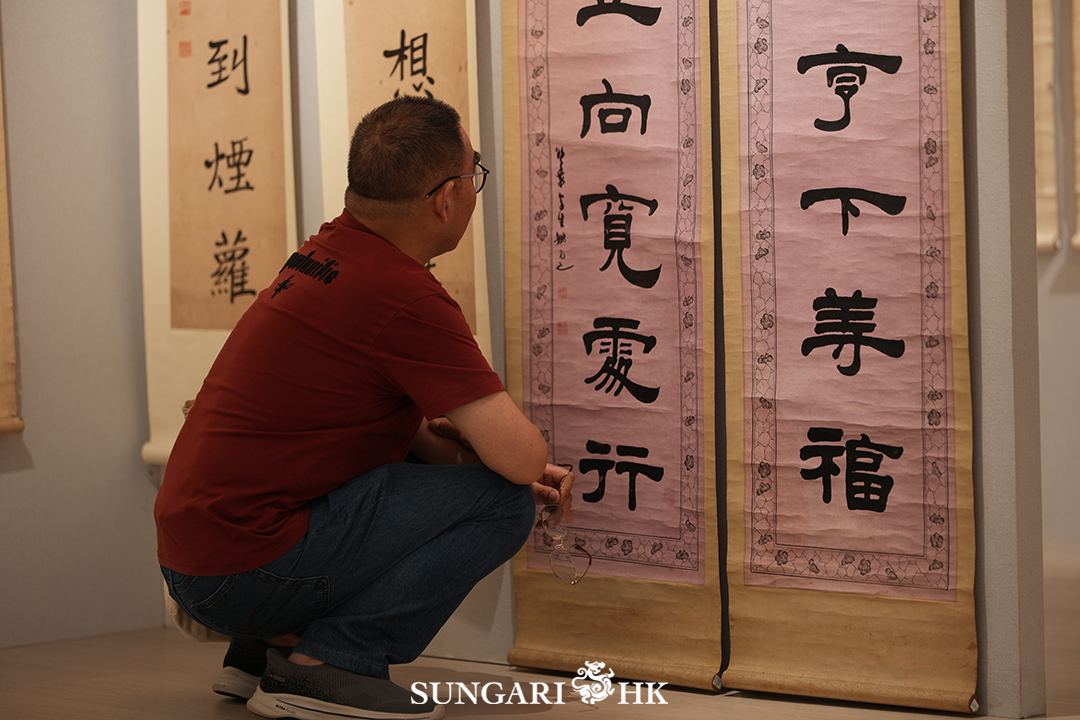 享下等福
立向寬處行
想
到煙蘿
SUNGARI HK